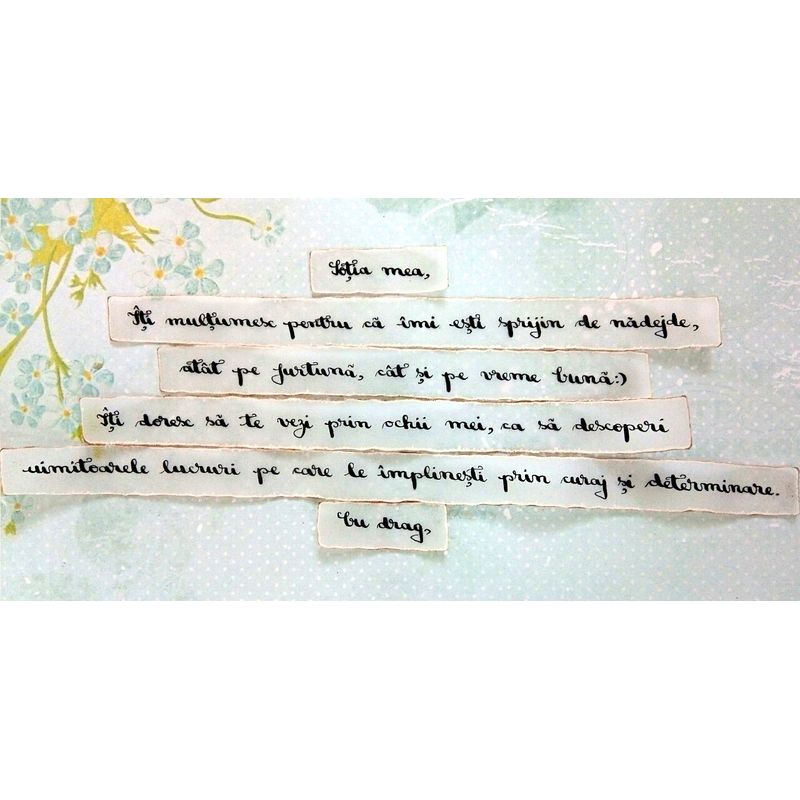 Soția mea,
Îți mulțumesc pentru că îmi ești sprijin de nădejde,
atât pe furtună, cât și pe vreme bună:)
Îți doresc să te vezi prin ochii mei, ca să descoperi
uimitoarele lucruri pe care le împlinești prin curaj și determinare.
Cu drag,